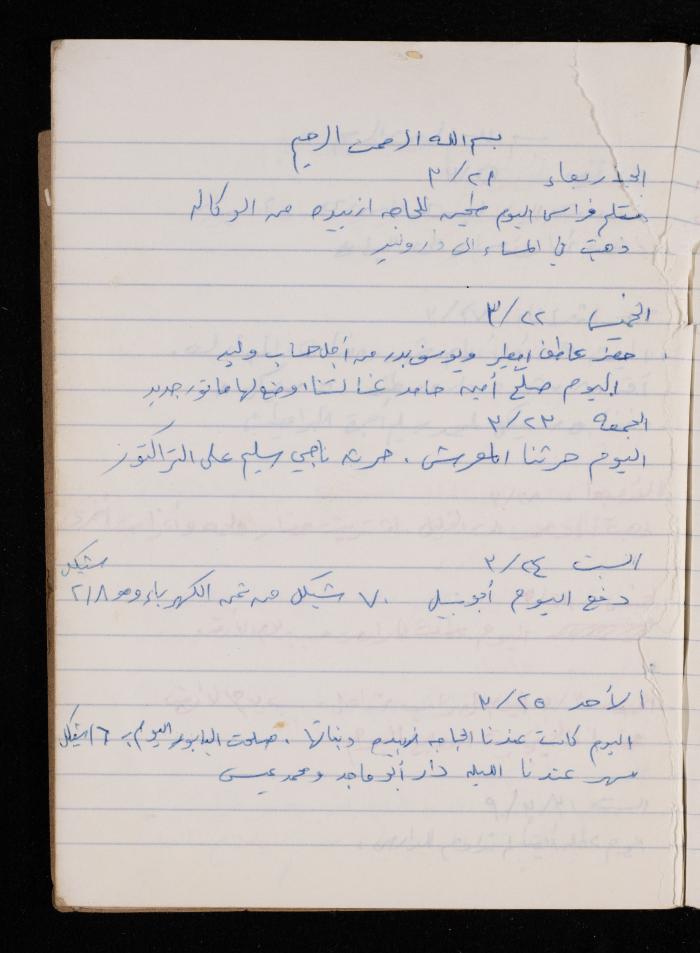 بسم الله الرحمن الرحيم
الاربعاء ٢١/٣
فراس اليوم للحاجه ازبيده من الوكاله
ذهبت في المساء الى دار وليد
الخميس ٢٢/٣
حضر عاطف ويوسف بدر من أجل حساب وليد
اليوم صلح أمين حامد غسالتنا وضع لها ماتور جديد
الجمعه ٢٣/٣
اليوم حرثنا المفرش . حرثه ناجي سليم على التراكتور
السبت ٢٤/٣
دفع اليوم أبو نبيل ٧٠ شيكل من ثمن الكهرباء وهو ٢١٨ شيكل
الأحد ٢٥/٣
اليوم كانت عندنا الحاجه زبيده وبناتها . صلحت البابور اليوم بـ ١٦ شيكل
سهر عندنا الليله دار أبو ماجد ومحمد عيسى